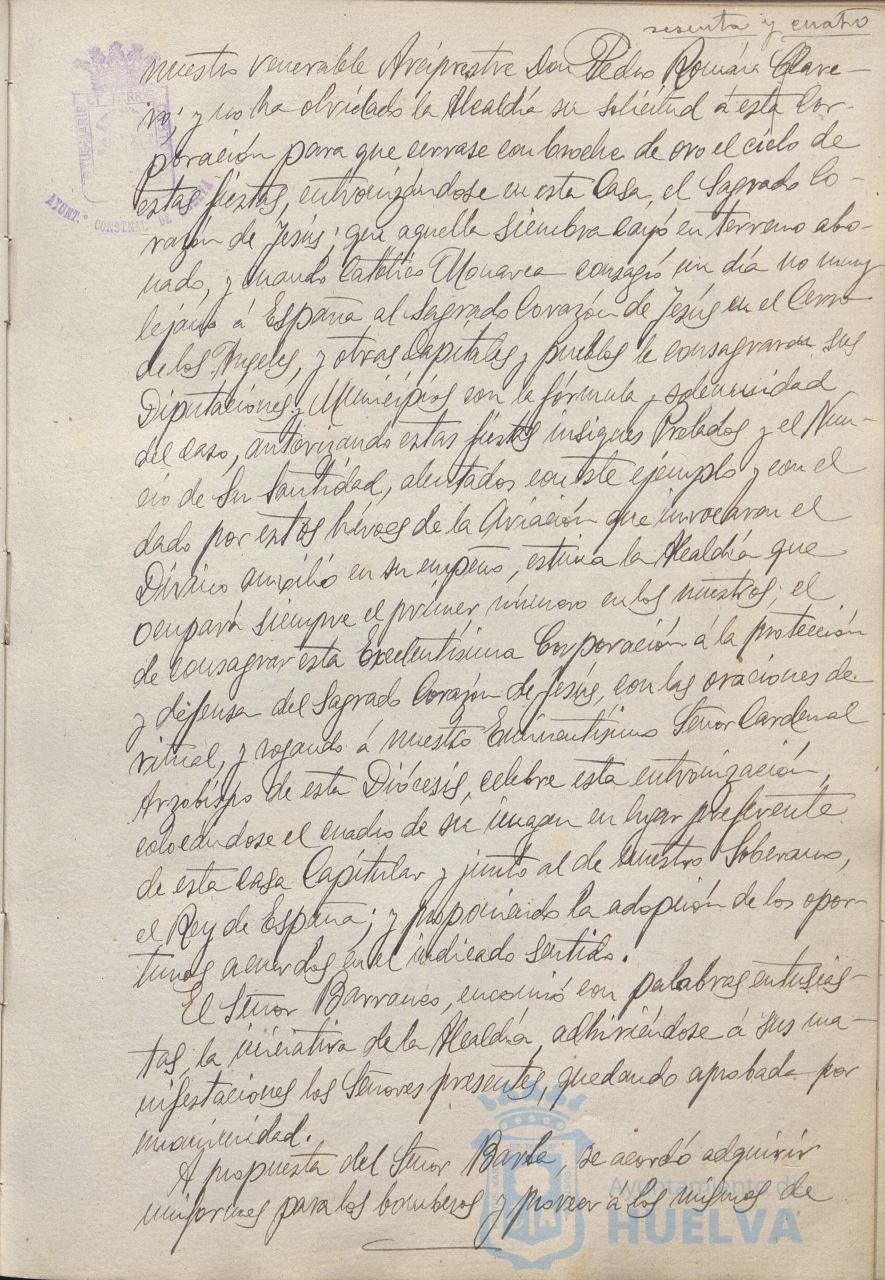 sesenta y cuatro
nuestro venerable Arcipreste Don Pedro Román Clave-
ro; y no ha olvidado la Alcaldía su solicitud á esta Cor-
poración para que cerrase con broche de oro el ciclo de
estas fiestas, entronizándose en esta Casa, el Sagrado Co-
razón de Jesús; que aquella siembra cayó en terreno abo-
nado, y cuando Católico Monarca consagró un día no muy
lejano á España al Sagrado Corazón de Jesús en el Cerro
de los Angeles, y otras Capitales y pueblos le consagraron sus
Diputaciones y Municipios con la fórmula y solemnidad
del caso, autorizando estas fiestas insignes Prelados y el Nun-
cio de Su Santidad, alentados con este ejemplo y con el
dado por estos héroes de la Aviación que invocaron el
Divino auxilio en su empeño, estima la Alcaldía que
ocupará siempre el primer número en los nuestros, el
de consagrar esta Excelentísima Corporación á la protección
y defensa del Sagrado Corazón de Jesús, con las oraciones de
ritual, y rogando á nuestro Eminentísimo Señor Cardenal
Arzobispo de esta Diócesis, celebre esta entronización,
colocándose el cuadro de su imagen en lugar preferente
de esta Casa Capitular y junto al de nuestro Soberano,
el Rey de España; y proponiendo la adopción de los opor-
tunos acuerdos en el indicado sentido.
El Señor Barranco, encomió con palabras entusias-
tas, la iniciativa de la Alcaldía, adhiriéndose á sus ma-
nifestaciones los Señores presentes, quedando aprobada por
unanimidad.
A propuesta del Señor Barba, se acordó adquirir
uniformes para los bomberos y proveer á los mismos de
AYUNT.º CONSTNAL. DE
Ayuntamiento de
HUELVA